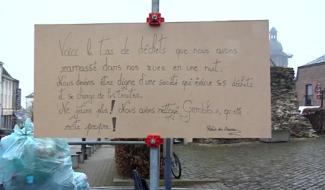 Voici le tas de déchets que nous avons
ramassé dans nos rues en une nuit.
Nous devons être digne d'une société qui réduit ses déchets
et se charge de les traiter.
Ne jetons plus ! Nous avons nettoyé Gembloux, qu'elle
reste propre !